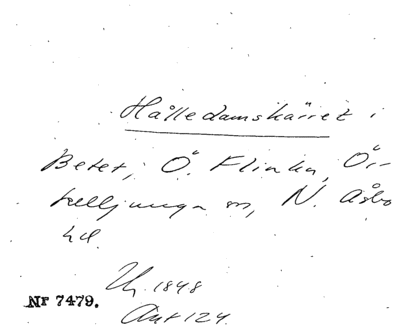 Hålledamskärret i
Betet, Ö. Flinka, Ör-
kelljunga sn, N. Åsbo
hd.
Uh. 1848
Nr 7479.
Ant 124.